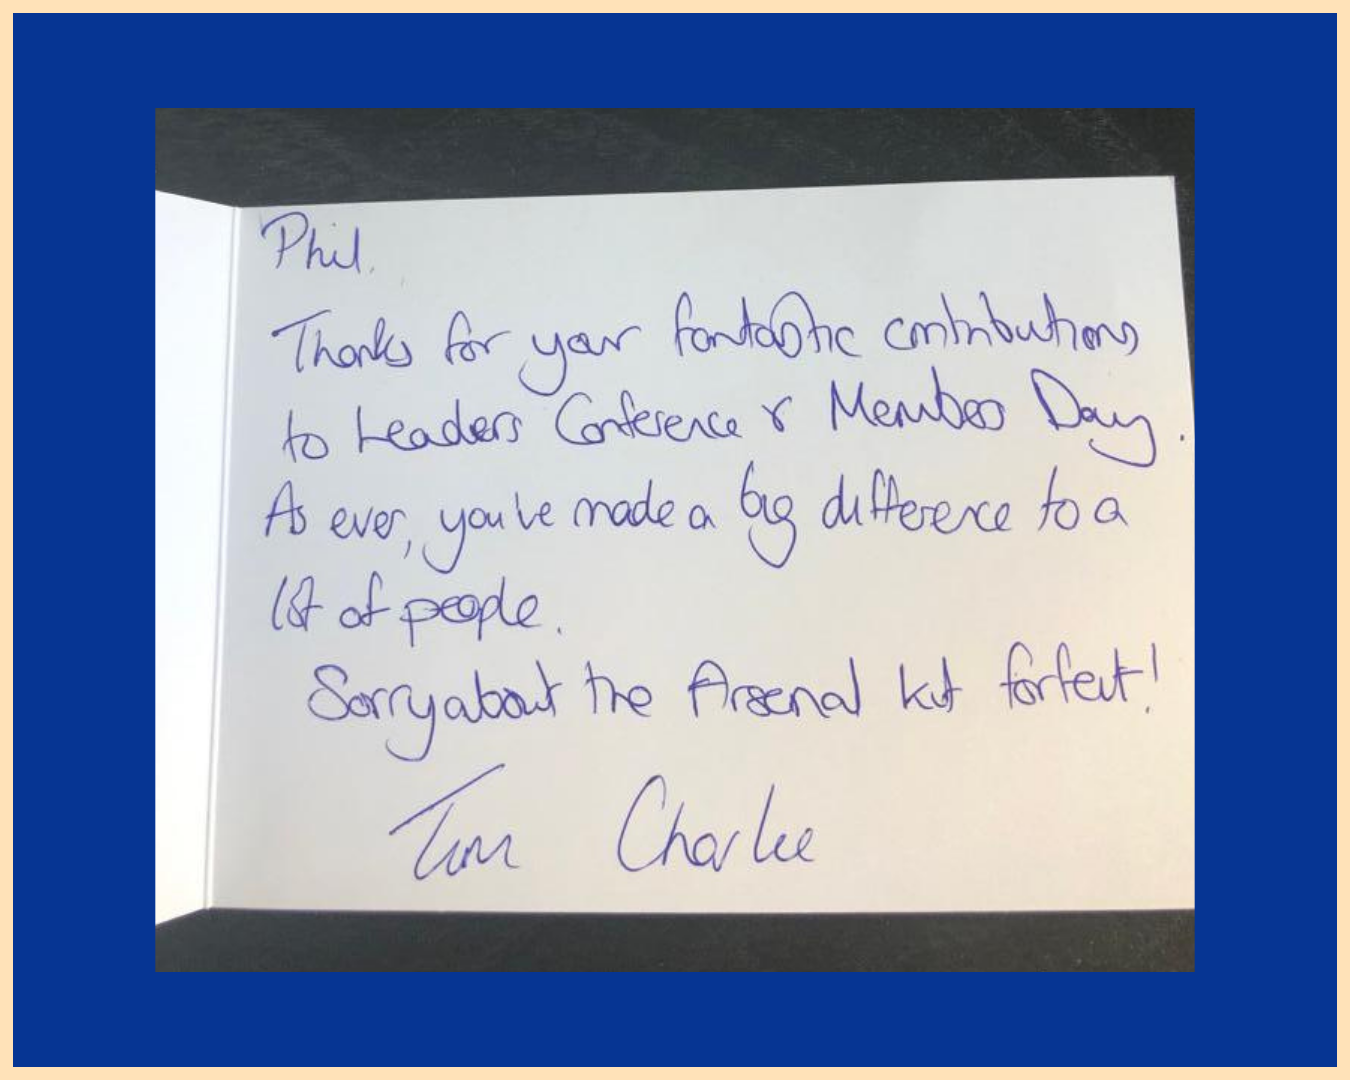 Phil.
Thanks for your fantastic contributions
to Leaders Conference & Members Day.
As ever, you've made a big difference to a
lot of people.
Sorry about the Arsenal kit forfeit!
Tim Charlie